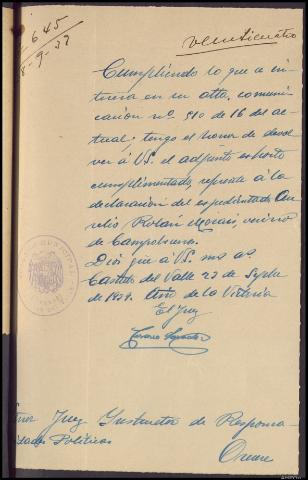 645
8-9-39
veinticuatro
Cumpliendo lo que a in-
teresa en su atta. comuni-
cación nº. 510 de 16 del ac-
tual; tengo el honor de devol-
ver á VS. el adjunto exhorto
cumplimentado, referente á la
declaración del expedientado Au-
relio Rolán, vecino
de
Dios gue á VS. ms aº.
Castillo del Valle 23 de Septbe
de 1939. Año de la Victoria
El Juez
Juez Instructor de Responsa-
Políticas
Orense